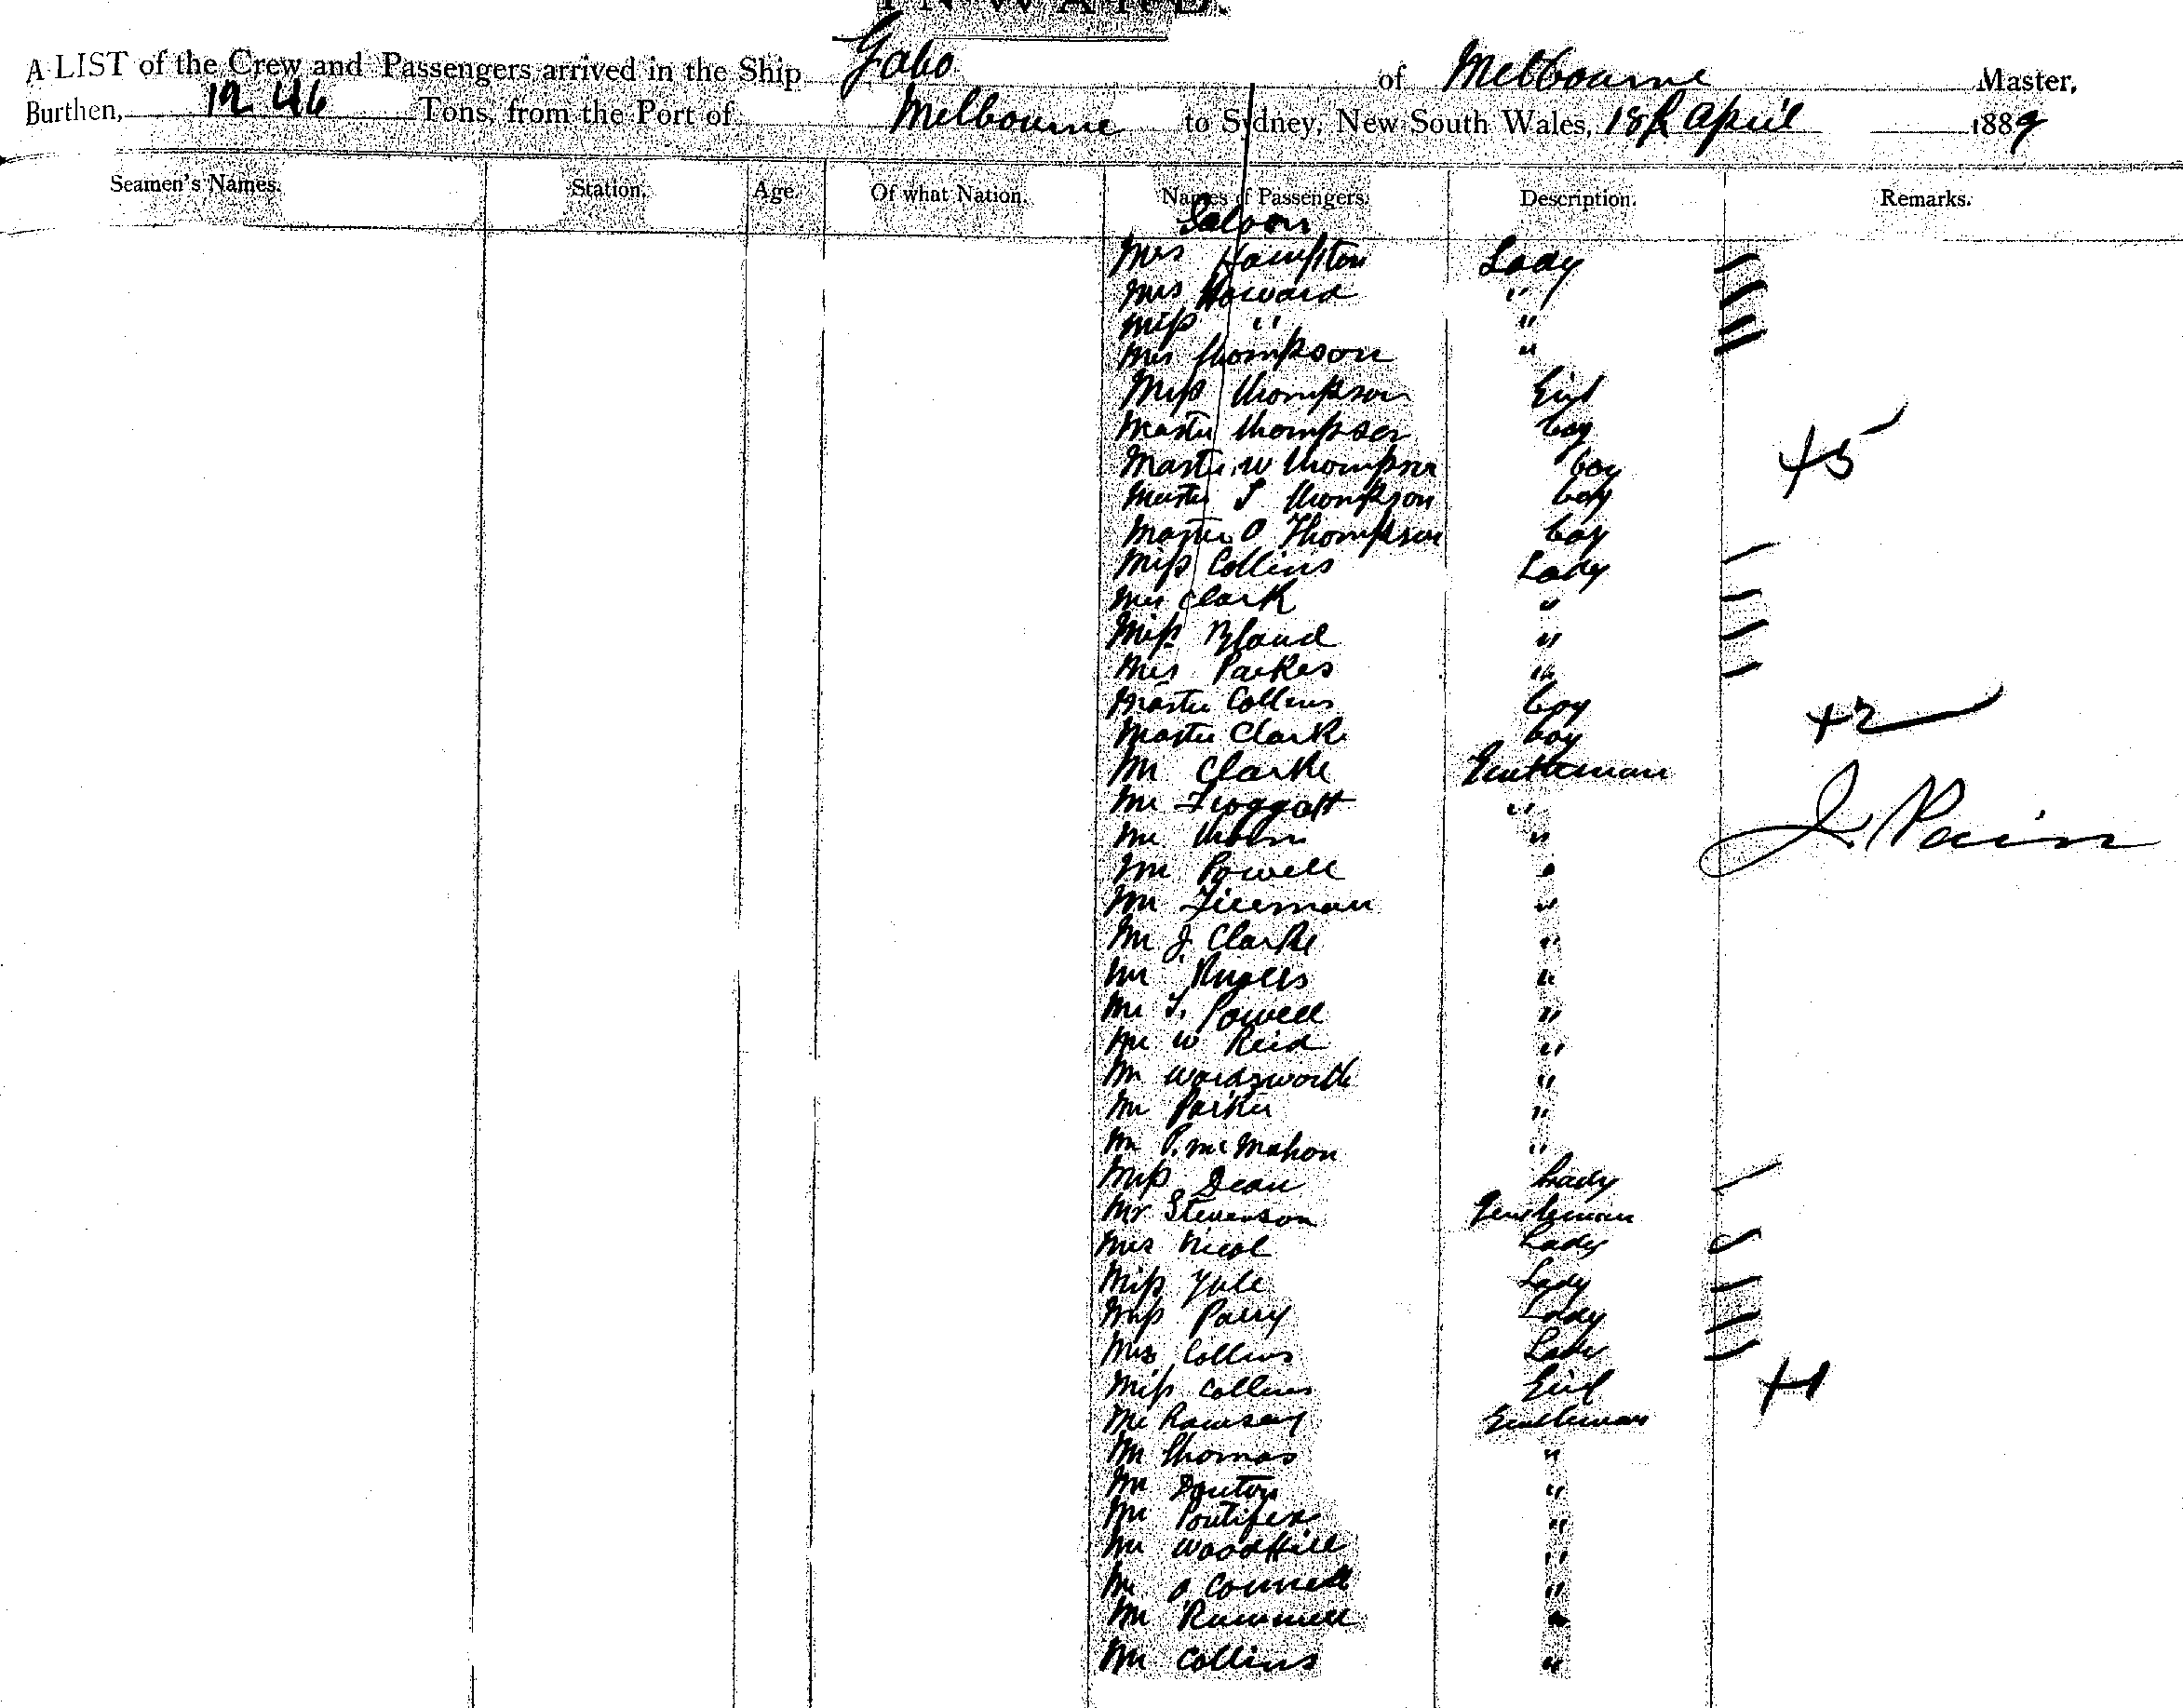 INWARD.
A LIST of the Crew and Passengers arrived in the Ship Gabo of Melbourne Master,
Burthen, 1246 Tons, from the Port of Melbourne to Sydney, New South Wales, 18th April 1889
Seamen's Names. Station. Age. Of what Nation. Names of Passengers. Description. Remarks.
Saloon
Mrs Hampton Lady
Mrs Howard "
Miss " "
Mrs Thompson "
Miss Thompson Girl
Master Thompson boy +5
Master W Thompson boy
Master S Thompson boy
Master O Thompson boy
Miss Collins Lady
Mrs Clark "
Miss Bland "
Mrs Parkes "
Master Collins boy +2
Master Clarke boy
Mr Clarke Gentleman
Mr Froggatt "
Mr "
Mr Powell "
Mr "
Mr J Clarke "
Mr "
Mr T. Powell "
Mr W Reid "
Mr Wordsworth "
Mr Parker "
Mr P. McMahon "
Miss Dean Lady
Mr Stevenson Gentleman
Mrs Nicol Lady
Miss Yule Lady
Miss Parry Lady
Mrs Collins Lady
Miss Collins Girl +1
Mr Ramsay Gentleman
Mr Thomas "
Mr "
Mr Pontifex "
Mr Woodhill "
Mr O Connell "
Mr Rummell "
Mr Collins "